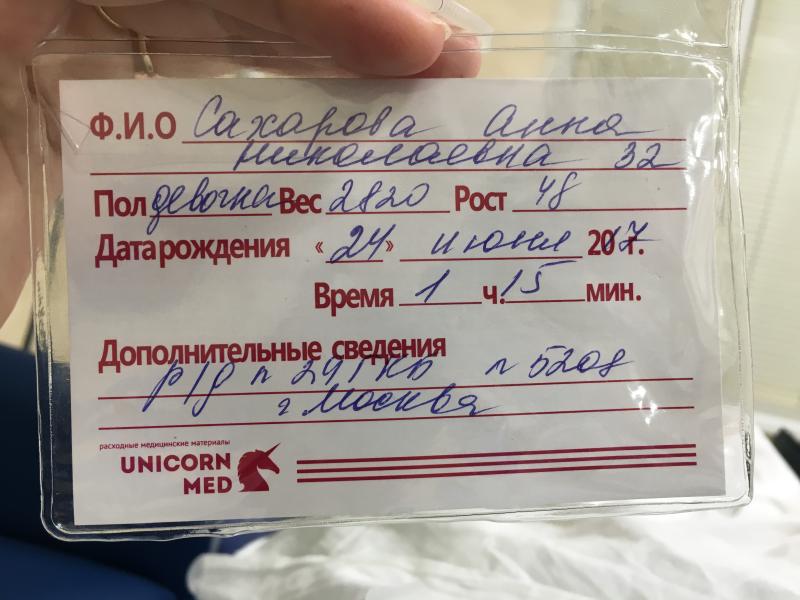 Ф.И.О Сахарова Анна
Николаевна 32
Пол девочка Вес 2820 Рост 48
Дата рождения «24» июня 2017г.
Время 1 ч. 15 мин.
Дополнительные сведения
р/д n 29 ГКБ n 5208
г Москва
расходные медицинские материалы
UNICORN
MED